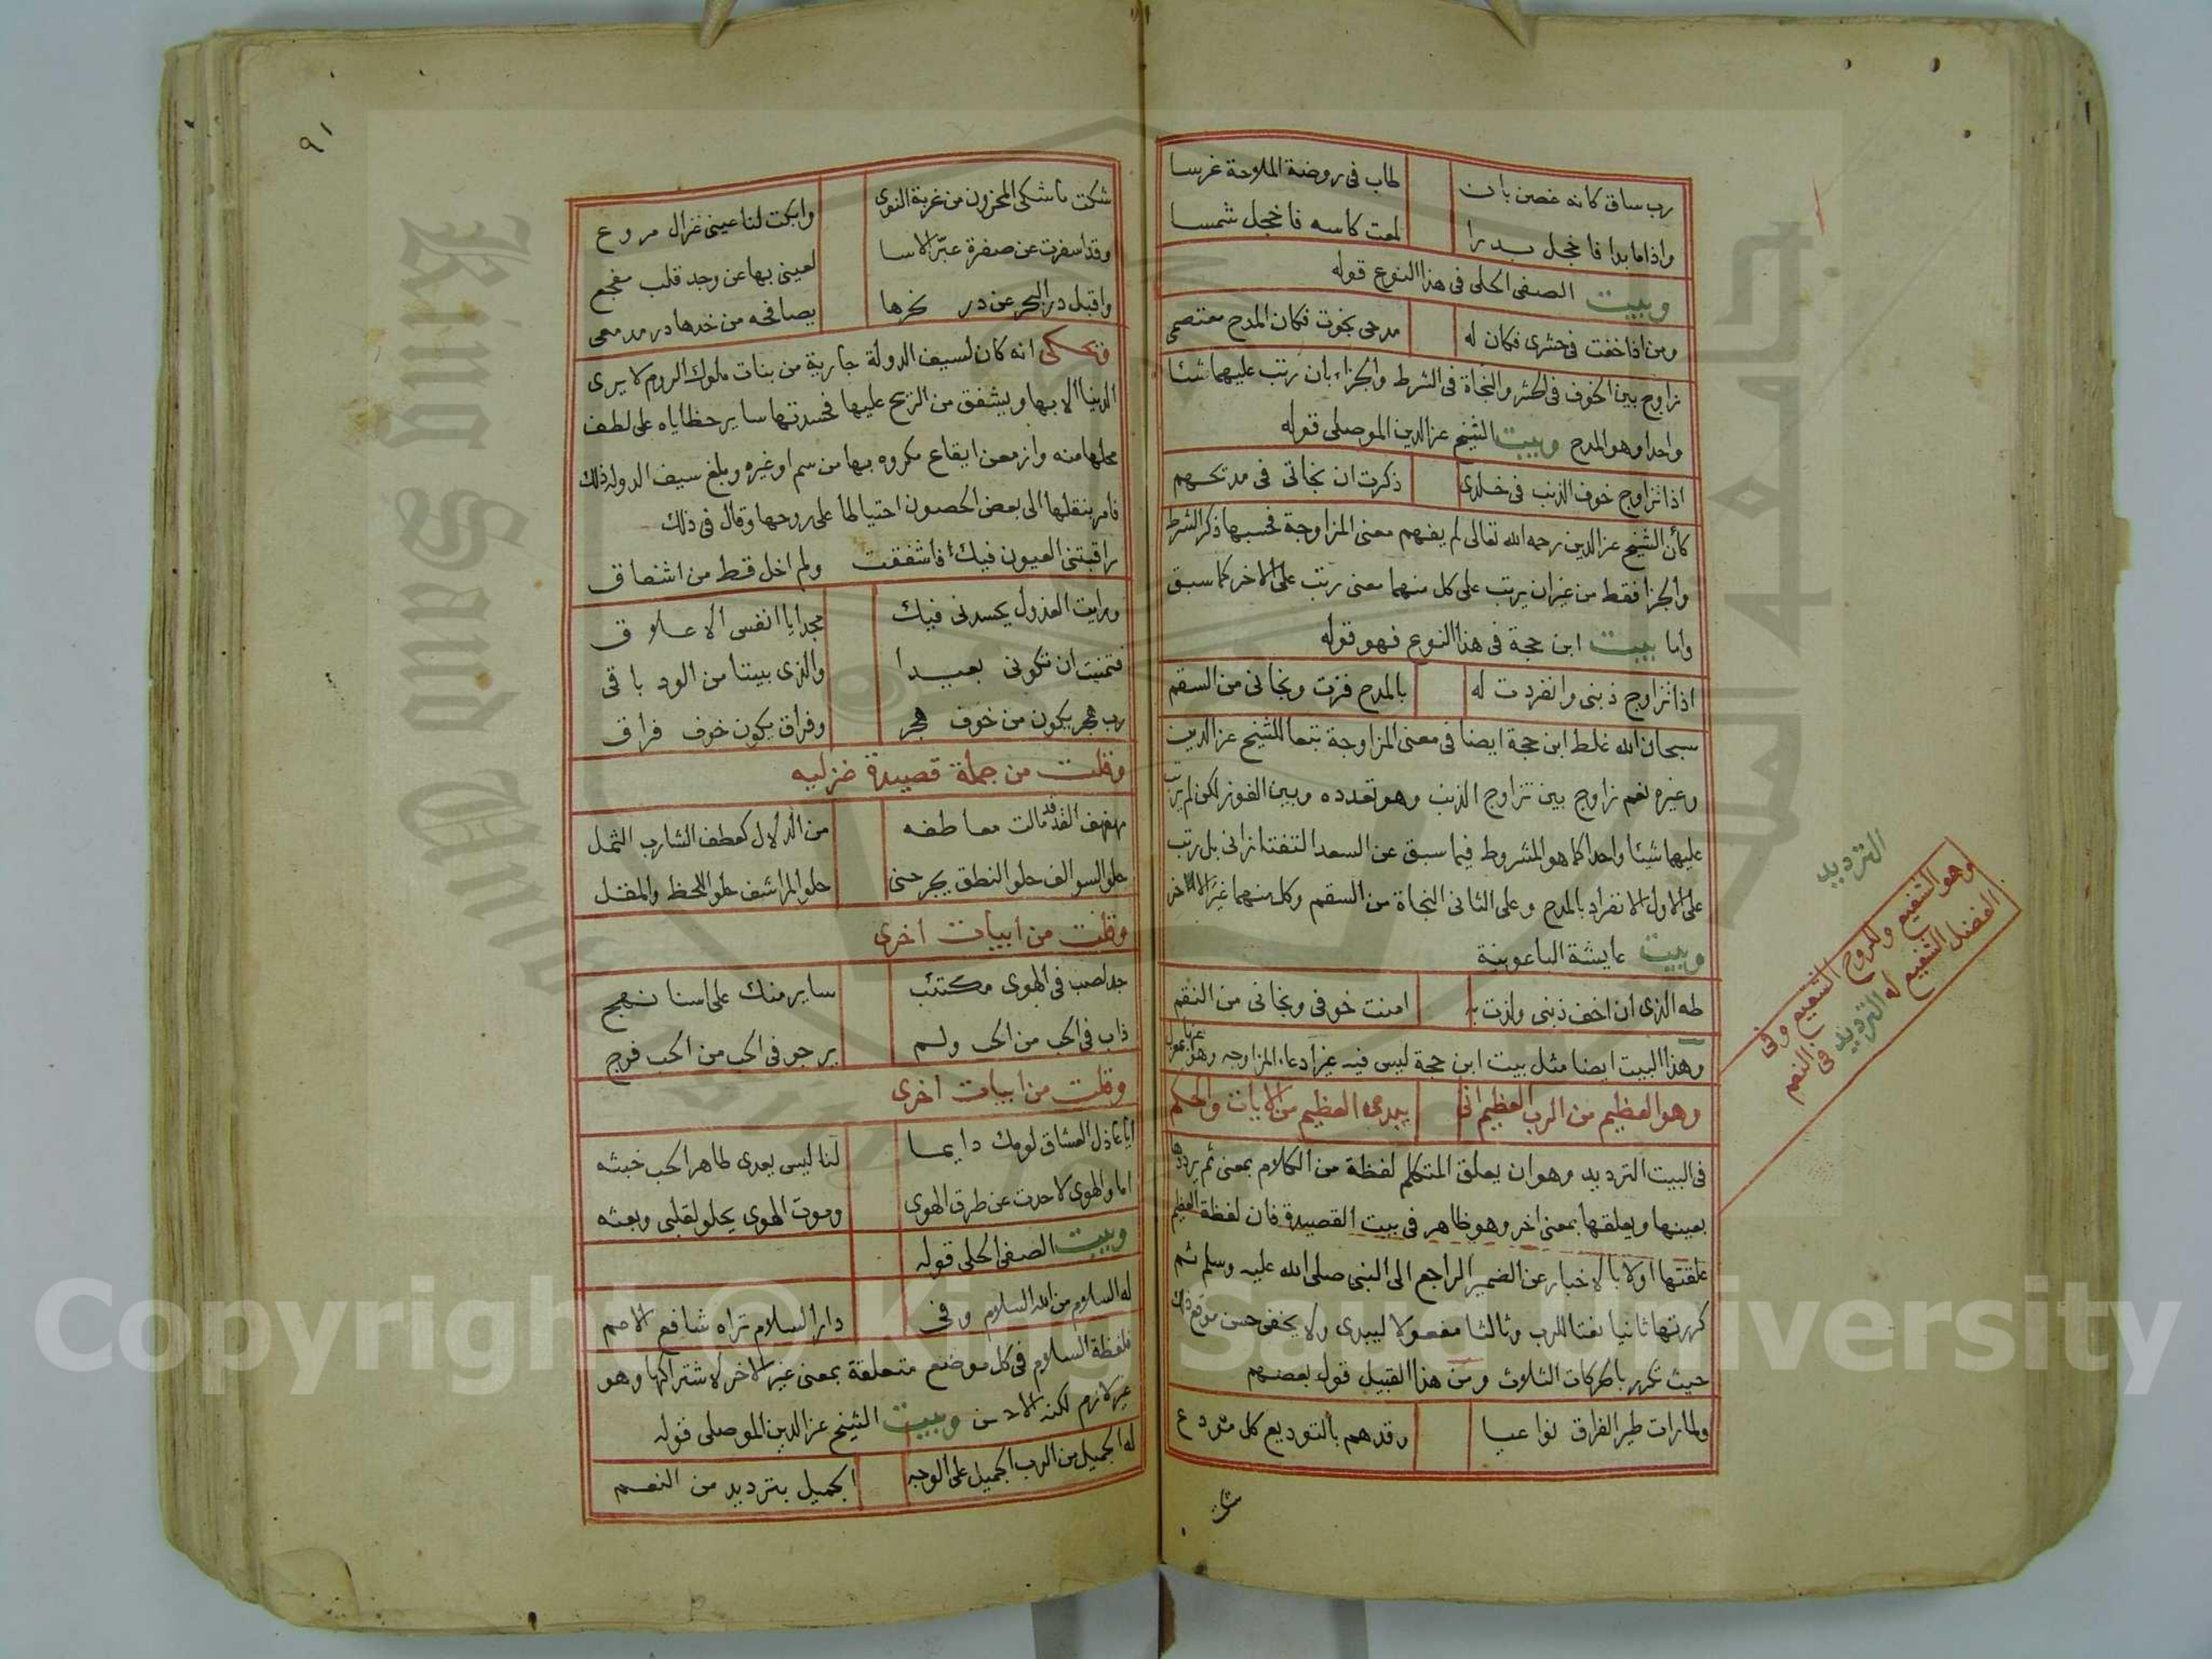 رب ساق كانه غصن بان طاب فى روضة الملاحة غرسا
واذا ما بدا فاخجل بدرا لمعت كاسه فاخجل شمسا
وبيت الصفى الحلى فى هذا النوع قوله
ومن اذا خفت فى حشرى فكان له مدحى نجوت فكان المدح معتصمى
زاوج بين الخوف فى الحشر والنجاة فى الشرط والجزاء بان رتب عليهما شئا
واحدا وهو المدح وبيت الشيخ عز الدين الموصلى قوله
اذا تزاوج خوف الذنب فى خلدى ذكرت ان نجاتى فى مديحهم
كأن الشيخ عز الدين رحمه الله تعالى لم يفهم معنى المزاوجة فحسبها ذكر الشرط
والجزا فقط من غير ان يرتب على كل منهما معنى رتب على الاخر كما سبق
واما بيت ابن حجة فى هذا النوع فهو قوله
اذا تزاوج ذنبى وانفردت له بالمدح فزت ونجانى من السقم
سبحان الله غلط ابن حجة ايضا فى معنى المزاوجة تبعا للشيخ عز الدين
وغيره نعم زاوج بين تزاوج الذنب وهو تعدده وبين الفوز لكن لم يرتب
عليها شيئا واحدا كما هو المشروط فيما سبق عن السعد التفتازانى بل رتب
على الاول الانفراد بالمدح وعلى الثانى النجاة من السقم وكل منهما غير الاخر
وبيت عايشة الباعونية
طه الذى ان اخف ذنبى ولذت به امنت خوفى ونجانى من النقم
وهذا البيت ايضا مثل بيت ابن حجة ليس فيه غير ادعاء المزاوجه وهو
وهو العظيم من الرب العظيم اتى يبدى العظيم من الايات والحكم
فى البيت الترديد وهو ان يعلق المتكلم لفظة من الكلام بمعنى ثم يرددها
بعينها ويعلقها بمعنى اخر وهو ظاهر فى بيت القصيدة فان لفظة العظيم
علقتها اولا بالاخبار عن الضمير الراجع الى النبى صلى الله عليه وسلم ثم
كررتها ثانيا نعتا للرب وثالثا مفعولا ليبدى ولا يخفى حسن موقع ذلك
حيث تكرر بالحركات الثلاث ومن هذا القبيل قول بعضهم
ولما رات طير الفراق نواعبا وقدهم بالتوديع كل مودع
الترديد
وهو التفيع وللروح الشعيع وفى
الفضل الشفيع له الترديد فى النعم
٩١
شكت ما شكى المحزون من غربة النوى وابكت لنا عينى غزال مروع
وقد اسفرت عن صفرة عبّر الاسا لعينى بها عن وجد قلب مفجع
واقبل در البحر عن در نحرها يصافحه من خدها در مدمعى
ويحكى انه كان لسيف الدولة جارية من بنات ملوك الروم لا يرى
الدنيا الا بها ويشفق من الريح عليها فحسدتها ساير حظاياه على لطف
محلها منه وازمعن ايقاع مكروه بها من سم او غيره وبلغ سيف الدولة ذلك
فامر بنقلها الى بعض الحصون احتياطا على روحها وقال فى ذلك
راقبتنى العيون فيك فاشفقت ولم اخل قط من اشفاق
ورايت العذول يحسدنى فيك مجدا يا انفس الاعلاق
فتمنيت ان تكونى بعيدا والذى بيننا من الود باقى
رب هجر يكون من خوف هجر وفراق يكون خوف فراق
وقلت من جملة قصيدة غزليه
مهفهف القد قد مالت معاطفه من الدلال كعطف الشارب الثمل
حلو السوالف حلو النطق يجرحنى حلو المراشف حلو اللحظ والمقل
وقلت من ابيات اخرى
جد لصب فى الهوى مكتئب ساير منك على اسنا نهج
ذاب فى الحب من الحب ولم يرجو فى الحب من الحب فرج
وقلت من ابيات اخرى
ايا عاذل العشاق لومك دايما لنا ليس يعدى طاهر الحب خبثه
اما والهوى لا حدت عن طرق الهوى وموت الهوى يحلو لقلبى وبعثه
وبيت الصفى الحلى قوله
له السلام من الله السلام وفى دار السلام تراه شافع الامم
فلفظة السلام فى كل موضع متعلقة بمعنى غير الاخر لاشتراكها وهو
غير لازم لكنه الاحسن وبيت الشيخ عز الدين الموصلى قوله
له الجميل من الرب الجميل على الوجه الجميل بترديد من النعم
Copyright © King Saud University
King Saud University